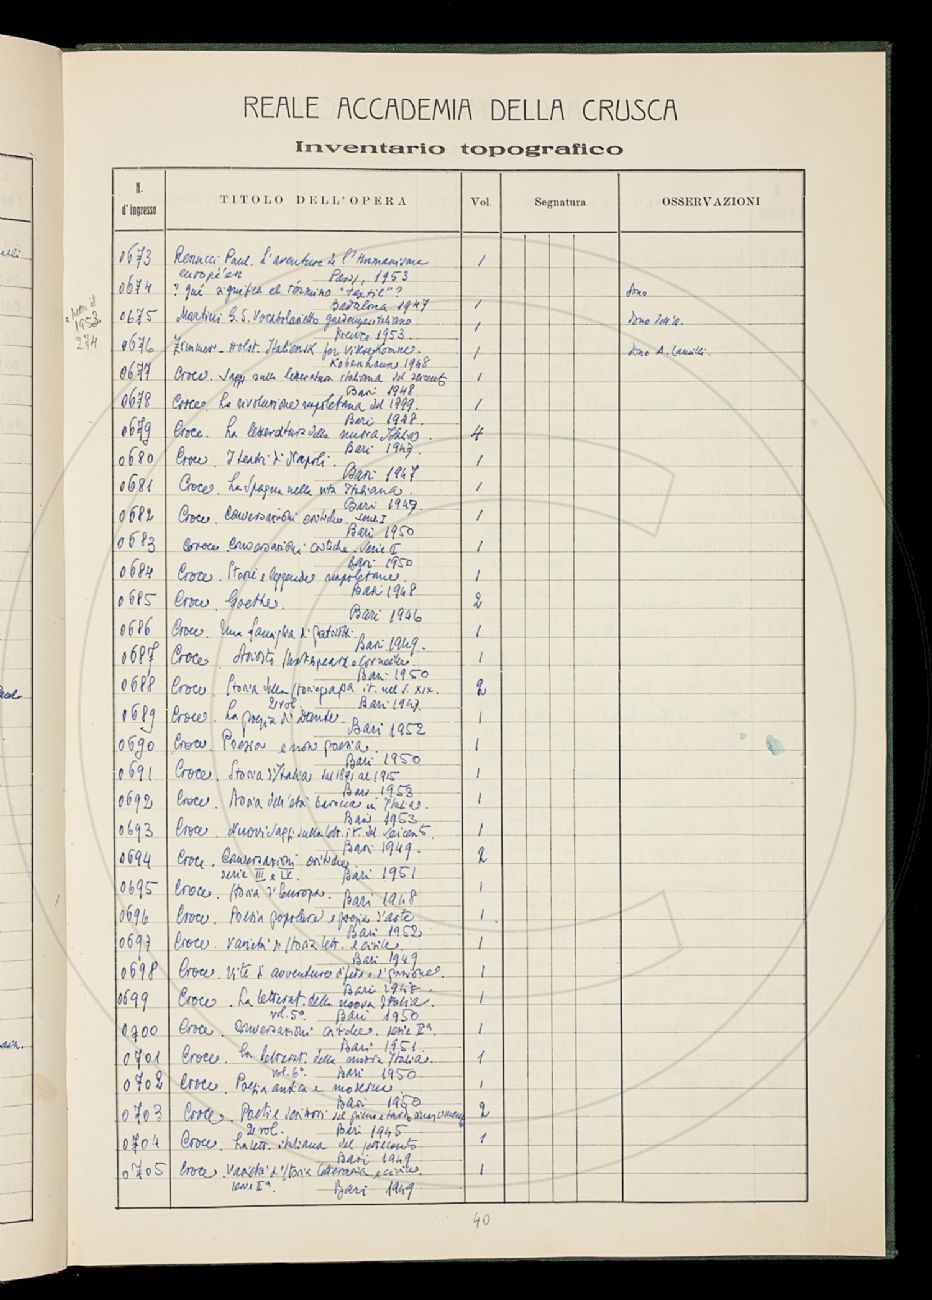 REALE ACCADEMIA DELLA CRUSCA
Inventario topografico
N. d'Ingresso TITOLO DELL'OPERA Vol. Segnatura OSSERVAZIONI
0673 Renucci Paul. L'aventure de l'Humanisme 1
européen Paris, 1953
0674 ? qué significa el término "textil"? dono
Badalona 1947 1
0675 Martini G.S. Vocabolarietto italiano dono
Firenze 1953. 1
0676 Zimmer-Holst. Italiensk for viderekomne. 1 dono A. Camilli.
København 1948
0677 Croce. Saggi sulla letteratura italiana del seicento 1
Bari 1948
0678 Croce. La rivoluzione napoletana del 1799. 1
Bari 1948.
0679 Croce. La letteratura della nuova Italia. 4
Bari 1947.
0680 Croce. I teatri di Napoli. 1
Bari 1947
0681 Croce. La Spagna nella vita Italiana. 1
Bari 1947.
0682 Croce. Conversazioni critiche. serie I 1
Bari 1950
0683 Croce. Conversazioni critiche. Serie II 1
Bari 1950
0684 Croce. Storie e leggende napoletane. 1
Bari 1948
0685 Croce. Goethe. 2
Bari 1946
0686 Croce. Una famiglia di patrioti. 1
Bari 1949.
0687 Croce. Ariosto Shakespeare e Corneille. 1
Bari 1950
0688 Croce. Storia della storiografia it. nel s. XIX. 2
2 vol. Bari 1947.
0689 Croce. La poesia di Dante. 1
Bari 1952
0690 Croce. Poesia e non poesia. 1
Bari 1950
0691 Croce. Storia d'Italia dal 1871 al 1915 1
Bari 1953
0692 Croce. Storia dell'età barocca in Italia. 1
Bari 1953
0693 Croce. Nuovi saggi sulla lett. it. del Seicento. 1
Bari 1949.
0694 Croce. Conversazioni critiche. 2
serie III e IV. Bari 1951
0695 Croce. Storia d'Europa. 1
Bari 1948
0696 Croce. Poesia popolare e poesia d'arte 1
Bari 1952
0697 Croce. Varietà di storia lett. e civile. 1
Bari 1949
0698 Croce. Vite di avventure di fede e di passione. 1
Bari 1947.
0699 Croce. La letterat. della nuova Italia. 1
vol. 5°. Bari 1950
0700 Croce. Conversazioni critiche. serie Vª. 1
Bari 1951.
0701 Croce. La letterat. della nuova Italia. 1
vol. 6°. Bari 1950
0702 Croce. Poesia antica e moderna. 1
Bari 1950
0703 Croce. Poeti e scrittori del pieno e tardo rinascimento 2
2 vol. Bari 1945
0704 Croce. La lett. italiana del settecento 1
Bari 1949
0705 Croce. Varietà di storia letteraria e civile. 1
serie IIª. Bari 1949
40
1953
274